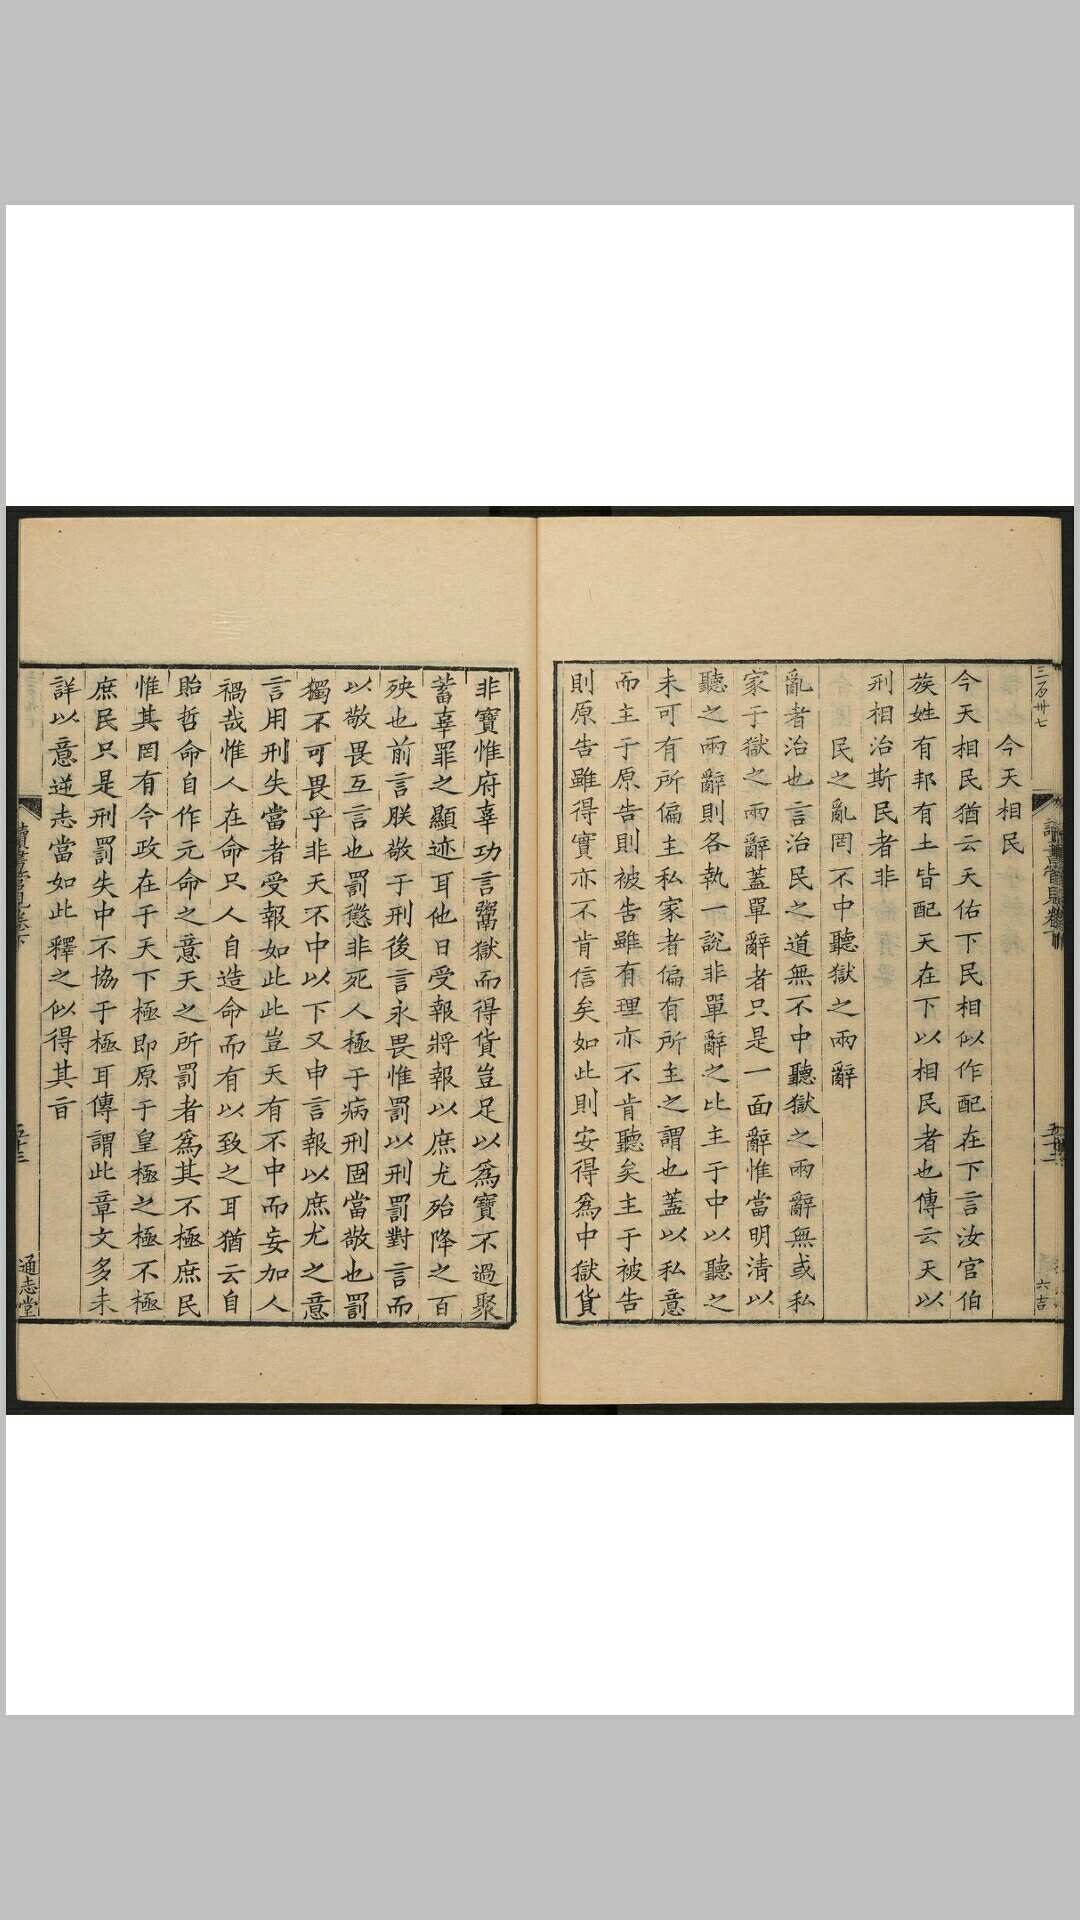 三百卅七
讀書管見卷下
六吉
今天相民
今天相民猶云天佑下民相似作配在下言汝官伯
族姓有邦有土皆配天在下以相民者也傳云天以
刑相治斯民者非
民之亂罔不中聽獄之兩辭
亂者治也言治民之道無不中聽獄之兩辭無或私
家于獄之兩辭蓋單辭者只是一面辭惟當明清以
聽之兩辭則各執一說非單辭之比主于中以聽之
未可有所偏主私家者偏有所主之謂也蓋以私意
而主于原告則被告雖有理亦不肯聽矣主于被告
則原告雖得實亦不肯信矣如此則安得爲中獄貨
非寶惟府辜功言鬻獄而得貨豈足以爲寶不過聚
蓄辜罪之顯迹耳他日受報將報以庶尤殆降之百
殃也前言朕敬于刑後言永畏惟罰以刑罰對言而
以敬畏互言也罰懲非死人極于病刑固當敬也罰
獨不可畏乎非天不中以下又申言報以庶尤之意
言用刑失當者受報如此此豈天有不中而妄加人
禍哉惟人在命只人自造命而有以致之耳猶云自
貽哲命自作元命之意天之所罰者爲其不極庶民
惟其罔有令政在于天下極即原于皇極之極不極
庶民只是刑罰失中不協于極耳傳謂此章文多未
詳以意逆志當如此釋之似得其旨
讀書管見卷下
五十三
通志堂